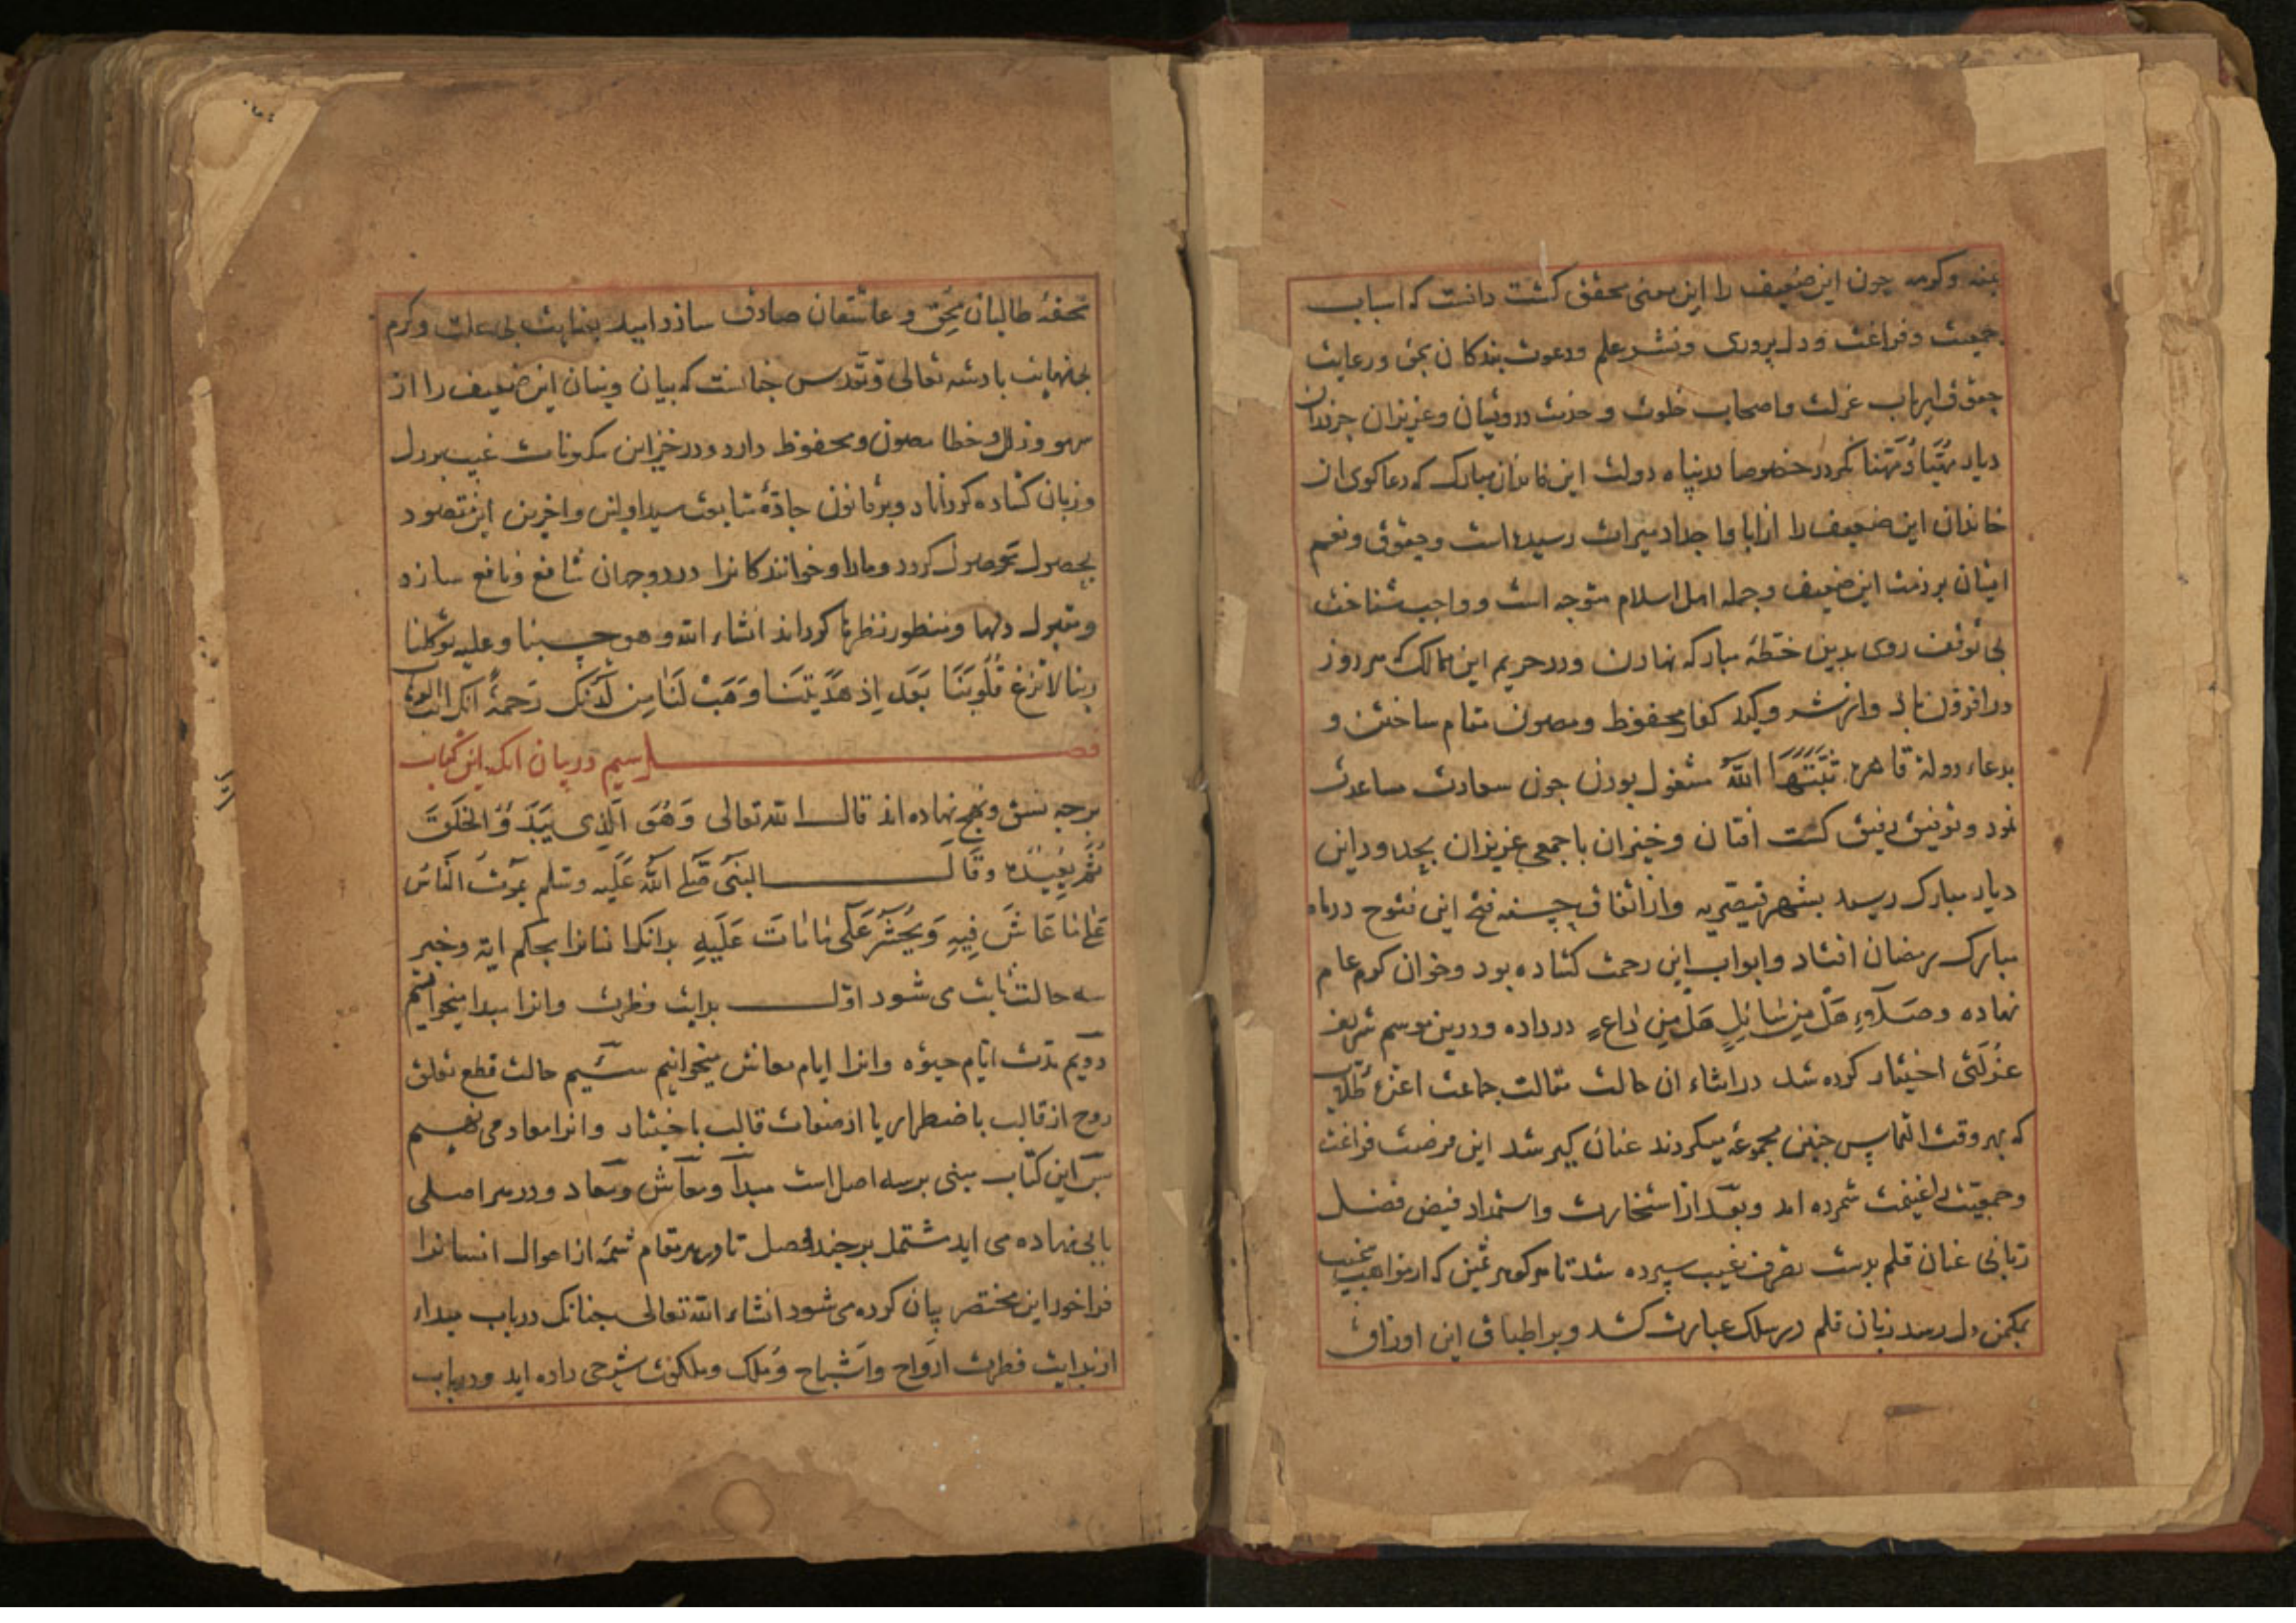 بمنه وکرمه چون این ضعیف را این معنی محقق کشت دانست که اسباب
جمعیت وفراغت ودل پروری ونشر علم ودعوت بندکان بحق ورعایت
حقوق ارباب عزلت واصحاب خلوت وخدمت درویشان وعزیزان جز دران
دیار مهیا ومهنا نکردد خصوصا در پناه دولت این خاندان مبارک که دعا کوی ان
خاندان این ضعیف را از ابا واجداد میراث رسیده است وحقوق ونعم
ایشان بر ذمت این ضعیف وجمله اهل اسلام متوجه است وواجب شناخت
بی توقف روی بدین خطهٔ مبارکه نهادن ودر حریم این ممالک که هر روز
در افزون باد واز شر وکید کفار محفوظ ومصون مقام ساختن و
بدعاء دولة قاهره ثَبَّتَهَا اللّٰهُ مشغول بودن چون سعادت مساعدت
نمود وتوفیق رفیق کشت افتان وخیزان با جمعی عزیزان بحدود این
دیار مبارک رسید بشهر قیصریه واز اتفاق حسنه فتح این فتوح در ماه
مبارک رمضان افتاد وابواب این رحمت کشاده بود وخوان کرم عام
نهاده وصلاء هَل مِن سَائِلٍ هَل مِن دَاعٍ در داده ودرین موسم شریف
عزلتی اختیار کرده شد در اثناء ان حالت مقالت جماعت اعزهٔ طلاب
که بهر وقت التماس چنین مجموعه میکردند عنان کیر شد این فرصت فراغت
وجمعیت را غنیمت شمرده امد وبعد از استخارت واستمداد فیض فضل
ربانی عنان قلم بدست تصرف غیب سپرده شد تا هر کوهر ثمین که از مواهب غیب
بمکمن دل رسد زبان قلم در سلک عبارت کشد وبر اطباق این اوراق
تحفهٔ طالبان محق وعاشقان صادق سازد امید بعنایت بی علت وکرم
بی نهایت بادشه تعالی وتقدس چنانست که بیان وبنان این ضعیف را از
سهو وزلل وخطا مصون ومحفوظ دارد ودر خزاین مکنونات غیب بر دل
وزبان کشاده کرداناد وبر قانون جادهٔ متابعت سید اولین واخرین این مقصود
بحصول موصول کردد ومارا وخوانندکانرا در دو جهان شافع ونافع سازد
ومقبول دلها ومنظور نظرها کرداند انشاء الله وهو حسبنا وعلیه توکلنا
ربنا لا تزغ قُلُوبَنَا بَعدَ اِذ هَدَیتَنَا وَهَبْ لَنَا مِن لَدُنکَ رَحمَةً انک انت الوهاب
فصل سیم در بیان انک این کتاب
بر چه نسق ونهج نهاده اند قال الله تعالی وَهُوَ الَّذِی یَبدَؤُ الخَلقَ
ثُمَّ یُعِیدُهُ وَقَالَ النبی صَلَّی اللّٰهُ عَلَیه وسلم یموت النَّاسُ
عَلَی مَا عَاشَ فِیهِ وَیُحشَرُ عَلَی مَا مَاتَ عَلَیهِ بدانک انسانرا بحکم ایة وخبر
سه حالت ثابت می شود اوّل بدایت فطرت وانرا مبدا میخوانیم
دویم مدت ایام حیوة وانرا ایام معاش میخوانیم سیم حالت قطع تعلق
روح از قالب باضطرار یا از صفات قالب باختیار وانرا معاد می نهیم
پس این کتاب مبنی بر سه اصل است مبدا ومعاش ومعاد ودر هر اصلی
بابی نهاده می اید مشتمل بر چند فصل تا در هر مقام شمهٔ از احوال انسانرا
فراخور این مختصر بیان کرده می شود انشاء الله تعالی چنانک در باب مبداء
از بدایت فطرت ارواح واشباح ومُلک وملکوت شرحی داده اید ودر باب